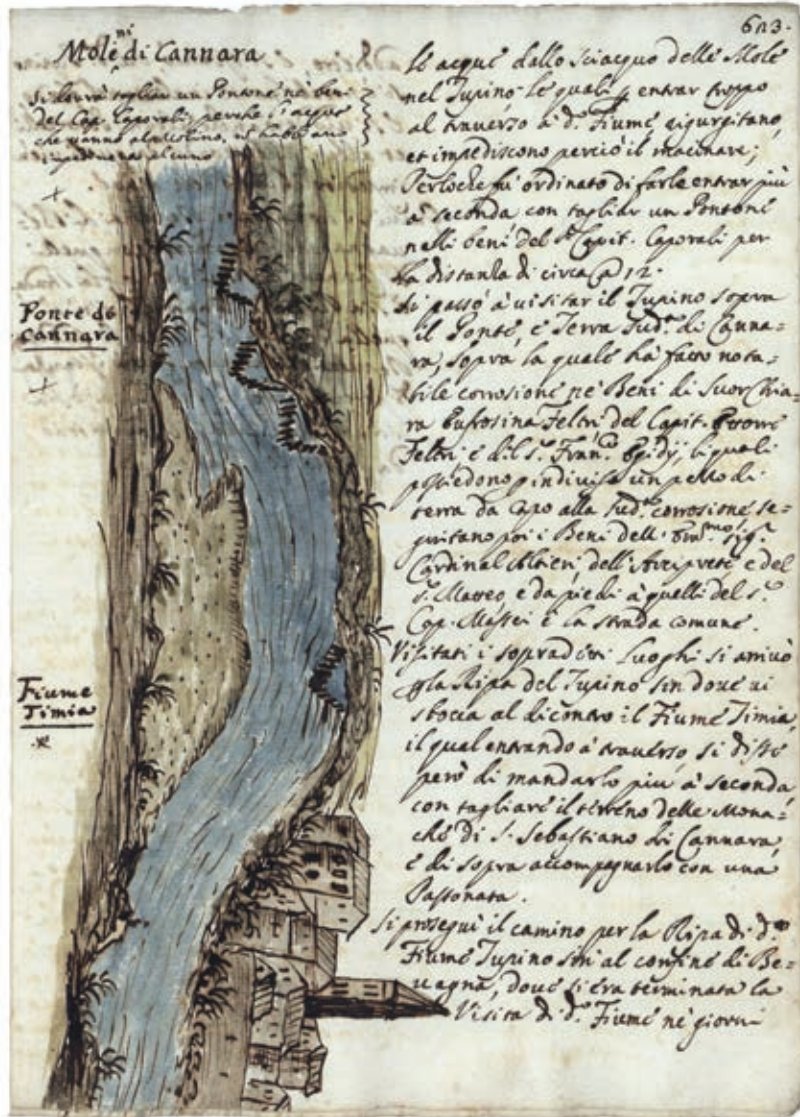 623.
Molini di Cannara
Si dovrà tagliar un Pontone ne beni
del Cap. Caporali, perche l'acque
che vanno al molino, nè habbiano
alcuno
le acque dallo sciacquo delle Mole
nel Tupino le quali p entrar troppo
al traverso à d.o Fiume, rigurgitano,
et impediscono perciò il macinare;
Perloche fù ordinato di farle entrar più
à seconda con tagliar un Pontone
nelli beni del S.r Capit. Caporali per
la distanza di circa 12.
Si passò à visitar il Tupino sopra
il Ponte, e Terra sud.a di Canna=
ra, sopra la quale hà fatto nota=
bile corrosione ne Beni di Suor Chia=
ra Eufrosina Feltri del Capit.
Feltri e di S.r Fran.co Egidij, li quali
possiedono p indiviso un pezzo di
terra da capo alla sud.a corrosione se=
guitano poi i Beni dell' Em.mo Sig.r
Cardinal Altieri dell' Arciprete e del
S. Matteo e da piedi à quelli del S.r
Cap. Massei e la strada comune.
Visitati i sopradetti Luoghi si arrivò
p la Ripa del Tupino sin dove vi
sbocca al dicontro il Fiume Timia,
il qual entrando à traverso, si disse
però di mandarlo più à seconda
con tagliare il terreno delle Mona=
che di S. Sebastiano di Cannara,
e di sopra accompagnarlo con una
Passonata.
Si proseguì il camino per la Ripa di d.o
Fiume Tupino sin al confine di Be=
vagna, dove si era terminata la
Visita di d.o Fiume ne giorni
Ponte di
Cannara
Fiume
Timia